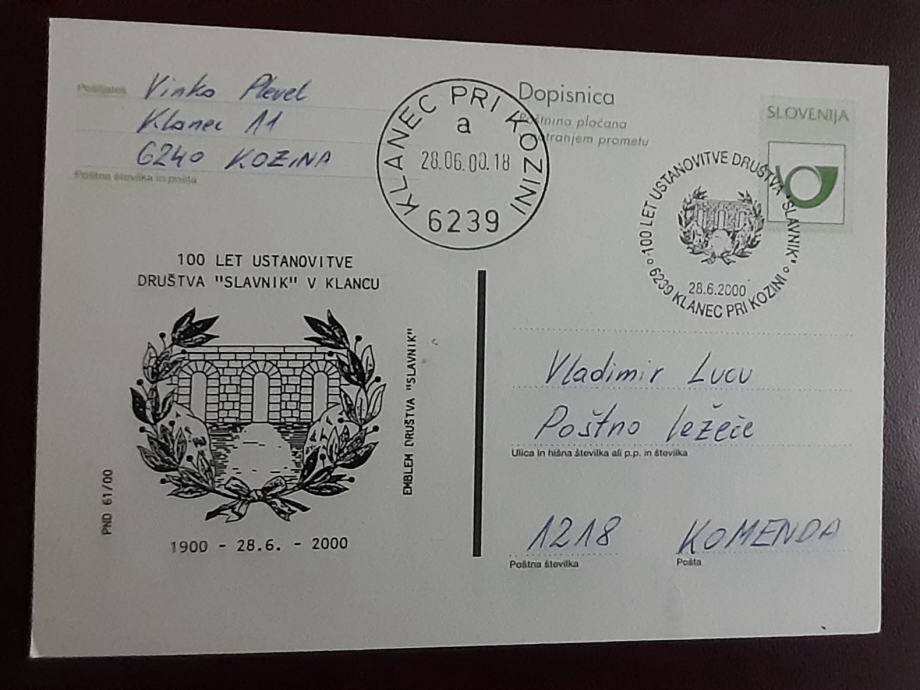 Pošiljatelj
Vinko Plevel
Klanec 11
6240 KOZINA
Poštna številka in pošta
KLANEC PRI KOZINI
a
28.06.00.18
6239
Dopisnica
Poštnina plačana
notranjem prometu
SLOVENIJA
100 LET USTANOVITVE DRUŠTVA "SLAVNIK"
28.6.2000
6239 KLANEC PRI KOZINI
100 LET USTANOVITVE
DRUŠTVA "SLAVNIK" V KLANCU
EMBLEM DRUŠTVA "SLAVNIK"
PND 61/00
1900 - 28.6. - 2000
Vladimir Lucu
Poštno ležeče
Ulica in hišna številka ali p.p. in številka
1218 KOMENDA
Poštna številka Pošta